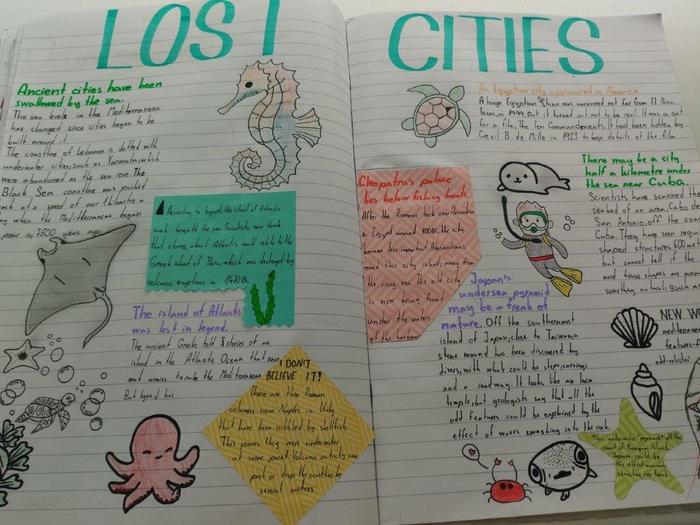 LOST CITIES
Ancient cities have been
swallowed by the sea.
The sea levels in the Mediterranean
has changed since cities began to be
built around it.
The coastline of Lebanon is dotted with
underwater cities, such as Yarmuta, which
were abandoned as the sea rose. The
Black Sea coastline was pushed
back at a speed of
when the Mediterranean began
pour in 7500 years ago.
According to legend, the island of Atlantis
sunk beneath the sea. Scientists now think
that stories about Atlantis could relate to the
Greek island of Thera, which was destroyed by
volcanic eruptions in 1470 Bc.
The island of Atlantis
was lost in legend.
The ancient Greeks told stories of an
island in the Atlantic Ocean that once
sent armies to rule the Mediterranean
But legend has
I DON'T
BELIEVE IT!
There are three Roman
columns near Naples in Italy
that have been nibbled by shellfish
This proves they were underwater
at some point. Volcanic activity can
push or drop the coastline by
several metres.
An Egyptian city appeared in America.
A huge Egyptian Sphinx was uncovered not far from El Paso,
Texas in 1999, but it turned out not to be real. It was a set
for a film, The Ten Commandments. It had been hidden by
Cecil B. de Mille in 1923 to keep details of the film
Cleopatra's palace
lies below fishing boats.
After the Romans took over
Egypt around 1000, the city
became less important. Alexandria
was now this city island, away from
the rising sea. The old city
is now being found
under the waters
of the harbour
There may be a city
half a kilometre under
the sea near Cuba.
Scientists have scanned the
seabed of an area, Cabo de
San Antonio, off the coast
Cuba. They have seen regular
shaped structures 600 m
but cannot tell if the
and house shapes are
something natural. Such as
Japan's
undersea pyramid
may be a freak of
nature. Off the southernmost
island of Japan, close to Taiwan a
stone mound has been discovered by
divers, with what could be steps, carvings
and a roadway. It looks like an Inca
temple, but geologists say that all the
odd features could be explained by the
effect of waves smashing into the rock.
NEW W
mediterra
features-f
This underwater "pyramid" off the
coast of Yonaguni Island,
Japan, could be
the oldest manmade
structure ever found